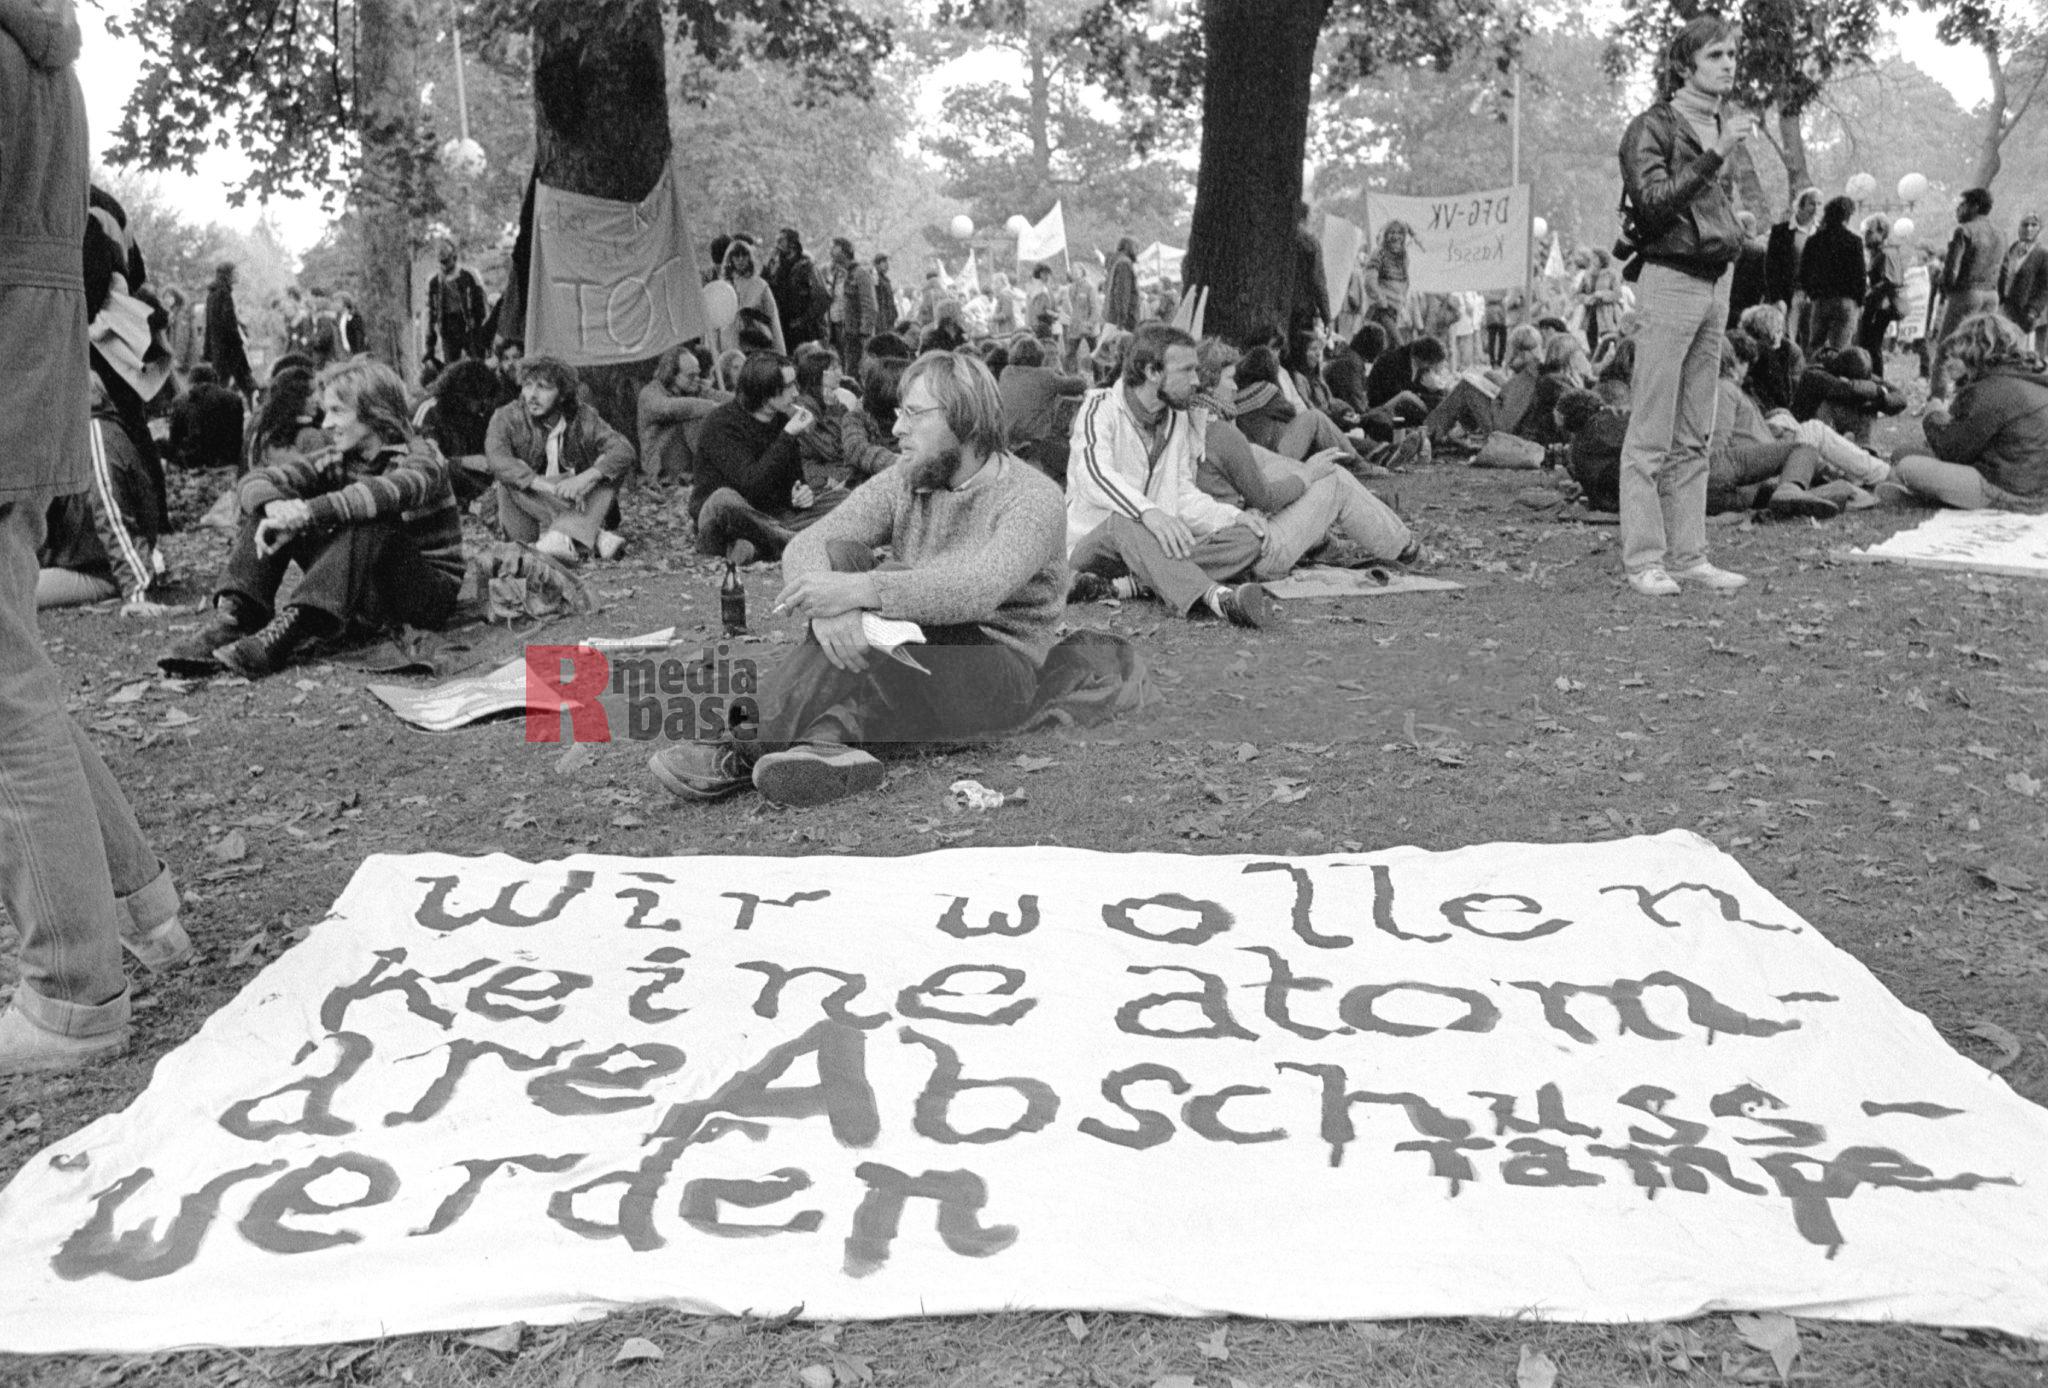 wir wollen
keine atom-
are Abschuss-
rampe
werden
DFG-VK
Kassel
TOT
KP
R media
base